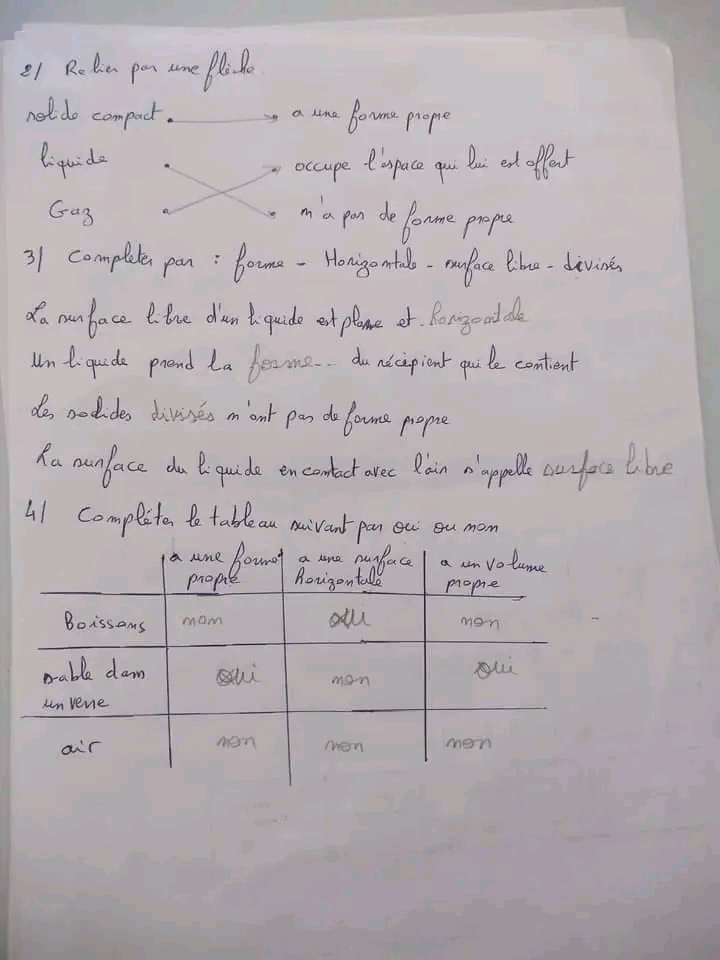 2/ Relier par une flèche
solide compact a une forme propre
liquide occupe l'espace qui lui est offert
Gaz n'a pas de forme propre
3/ Completer par : forme - Horizontale - surface libre - divisés
La surface libre d'un liquide est plane et horizontale
Un liquide prend la forme... du récipient qui le contient
Les solides divisés n'ont pas de forme propre
La surface du liquide en contact avec l'air s'appelle surface libre
4/ Compléter le tableau suivant par oui ou non
a une forme propre a une surface horizontale a un volume propre
Boissons non oui non
sable dans un verre oui non oui
air non non non